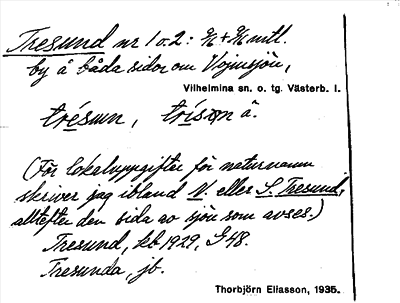 Tresund nr 1 o. 2: 
by å båda sidor om Vojmsjön,
Vilhelmina sn. o. tg. Västerb. l.
trésun, å.
(För lokaluppgifter för naturnamn
skriver jag ibland N. eller S. Tresund,
alltefter den sida av sjön som avses.)
Tresund, kb 1929, G48.
Tresunda, jb.
Thorbjörn Eliasson, 1935.